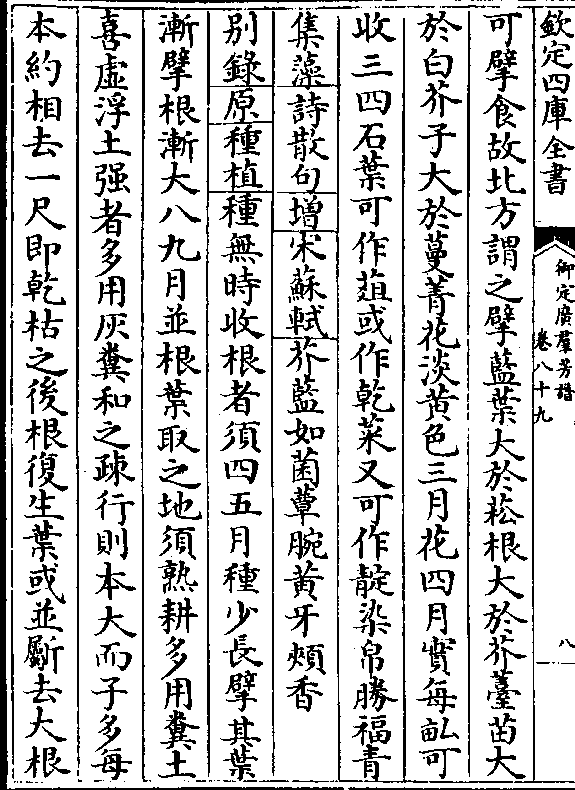 欽定四庫全書
御定廣羣芳譜
卷八十九
八
可擘食故北方謂之擘藍葉大於菘根大於芥薹苗大
於白芥子大於蔓菁花淡黄色三月花四月實每畝可
收三四石葉可作葅或作乾菜又可作靛染帛勝福青
集藻詩散句增宋蘇軾芥藍如菌蕈脆黄牙頰香
别錄原種植種無時收根者須四五月種少長擘其葉
漸擘根漸大八九月並根葉取之地須熟耕多用糞土
喜虛浮土强者多用灰糞和之疎行則本大而子多每
本約相去一尺即乾枯之後根復生葉或並斸去大根